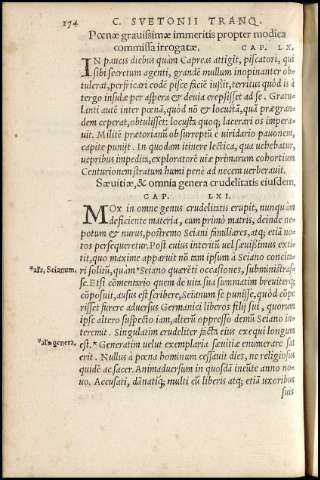 274 C. SVETONII TRANQ.
Pœnæ grauissimæ immeritis propter modica
commissa irrogatæ. CAP. LX.
IN paucis diebus quàm Capreas attigit, piscatori, qui
sibi secretum agenti, grandẽ mullum inopinanter ob-
tulerat, perfricari eodẽ pisce faciẽ iussit, territus quòd is à
tergo insulæ per aspera & deuia erepsisset ad se. Gratu-
lanti autẽ inter pœnã, quòd nõ & locustã, quã prægran-
dem ceperat, obtulisset: locusta quoq; lacerari os impera-
uit. Militẽ prætorianũ ob surreptũ e uiridario pauonem,
capite punijt. In quodam itinere lectica, qua uehebatur,
uepribus impedita, exploratorẽ uiæ primarum cohortium
Centurionem stratum humi penè ad necem uerberauit.
Sæuitiæ, & omnia genera crudelitatis eiusdem,
CAP. LXI.
MOx in omne genus crudelitatis erupit, nunquàm
deficiente materia, cum primò matris, deinde ne-
potum & nurus, postremo Seiani familiares, atq; etiã no-
tos persequeretur. Post cuius interitũ uel sæuissimus exti-
tit, quo maxime apparuit nõ tam ipsum à Seiano concita-
*als, Seianum. ri solitũ, quàm *Seiano quærẽti occasiones, subministras-
se. Etsi cõmentario quem de uita sua summatim breuiterq;
cõposuit, ausus est scribere, Seianum se punisse, quòd cõpe-
risset furere aduersus Germanici liberos filij sui, quorum
ipse alterũ suspecto iam, alterũ oppresso demũ Seiano in-
teremit. Singulatim crudeliter facta eius exequi longum
*als genera. est. * Generatim uelut exemplaria sæuitiæ enumerare sat
erit. Nullus à pœna hominum cessauit dies, ne religiosus
quidẽ ac sacer. Animaduersum in quosdã ineũte anno no-
uo. Accusati, dãnatiq; multi cũ liberis atq; etiã uxoribus
suis